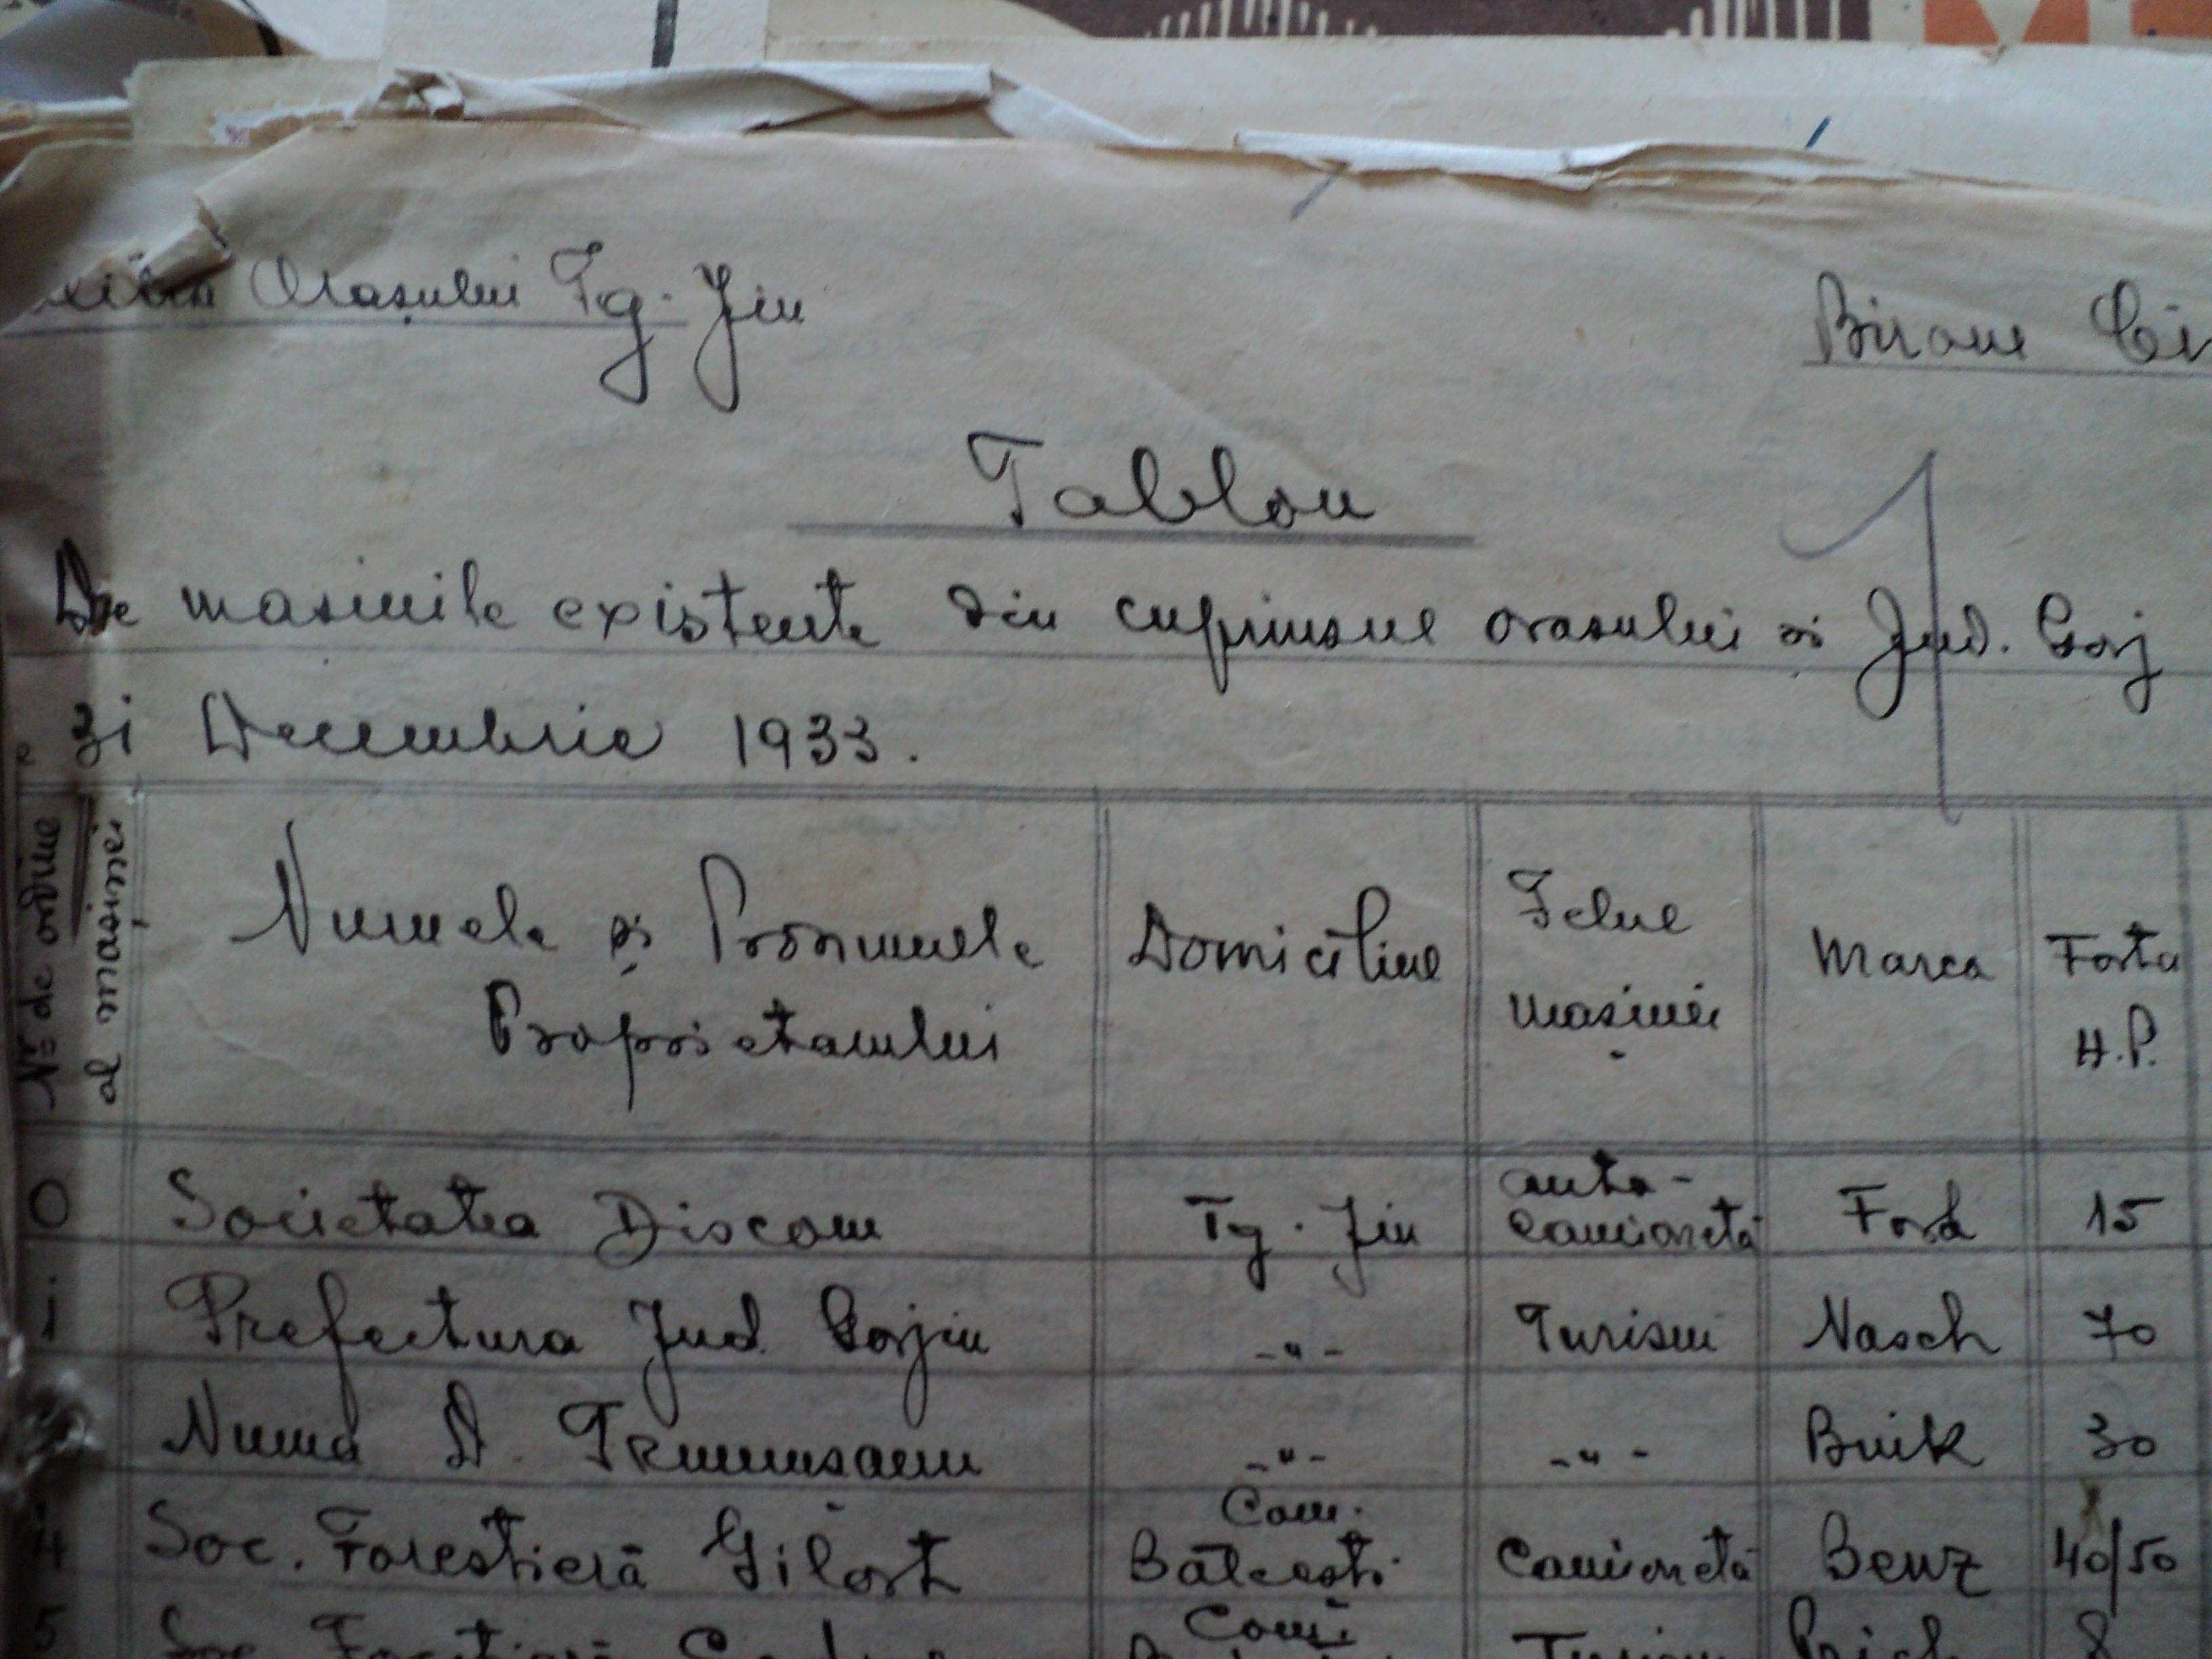 Orașului Tg. Jiu
Biroue
Tablou
De masinile existente din cuprinsul orasului și Jud. Gorj
31 Decembrie 1933.
Nr de ordine al mașinei
Numele și Pronumele Proprietarului
Domiciliul
Felul mașinei
Marca
Forta H.P.
0 Societatea Discom Tg. Jiu auto-camionetă Ford 15
1 Prefectura Jud Gorjiu -"- Turism Nasch 70
Numa D. -"- -"- Buik 30
4 Soc. Forestieră Gilort Com. Bălcesti Camionetă Benz 40/50
5 Soc. Com. 8